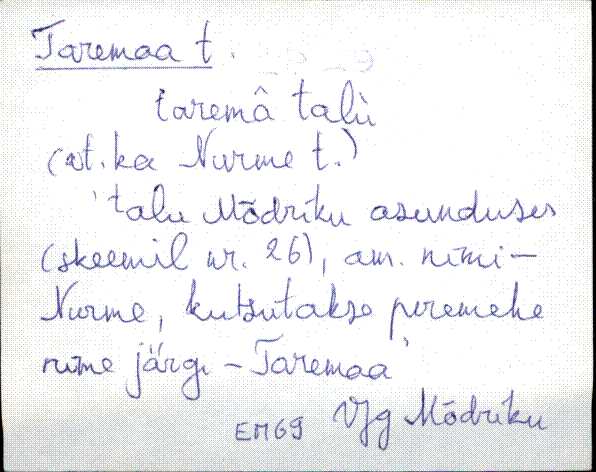 Taremaa t.
taremâ talù
(vt. ka Nurme t.)
'talu Mõdriku asunduses
(skeemil nr. 26), am. nimi –
Nurme, kutsutakse peremehe
nime järgi – Taremaa'
EM69 VJg Mõdriku